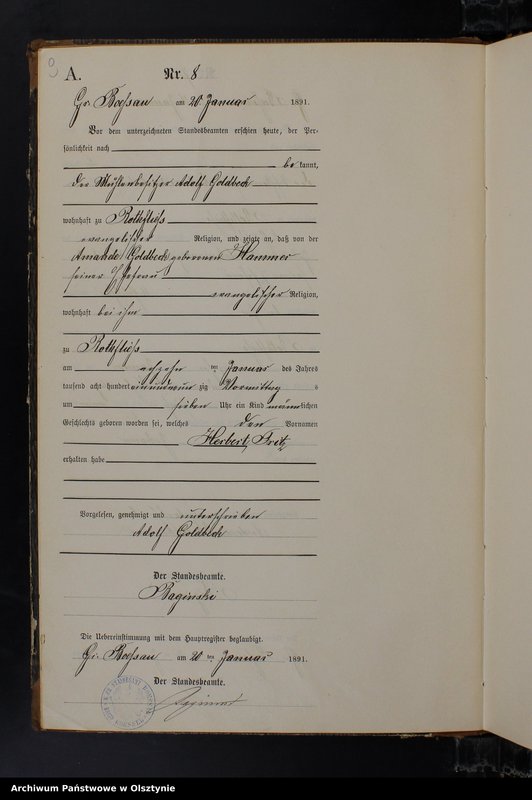 A. Nr. 8
Gr. Boessau am 20 Januar 1891.
Vor dem unterzeichneten Standesbeamten erschien heute, der Per-
sönlichkeit nach
be kannt,
der Mühlenbesitzer Adolf Goldbeck
wohnhaft zu Rothfliess
evangelischer Religion, und zeigte an, daß von der
Amande Goldbeck geborenen Hammer
seiner Ehefrau
evangelischer Religion,
wohnhaft bei ihm
zu Rothfliess
am achzehn ten Januar des Jahres
tausend acht hundert einundneun zig Vormittag s
um sieben Uhr ein Kind männlichen
Geschlechts geboren worden sei, welches den Vornamen
Herbert Fritz
erhalten habe
Vorgelesen, genehmigt und unterschrieben
Adolf Goldbeck
Der Standesbeamte.
Baginski
Die Uebereinstimmung mit dem Hauptregister beglaubigt.
Gr. Boessau am 20 ten Januar 1891.
Der Standesbeamte.
Baginski
Archiwum Państwowe w Olsztynie